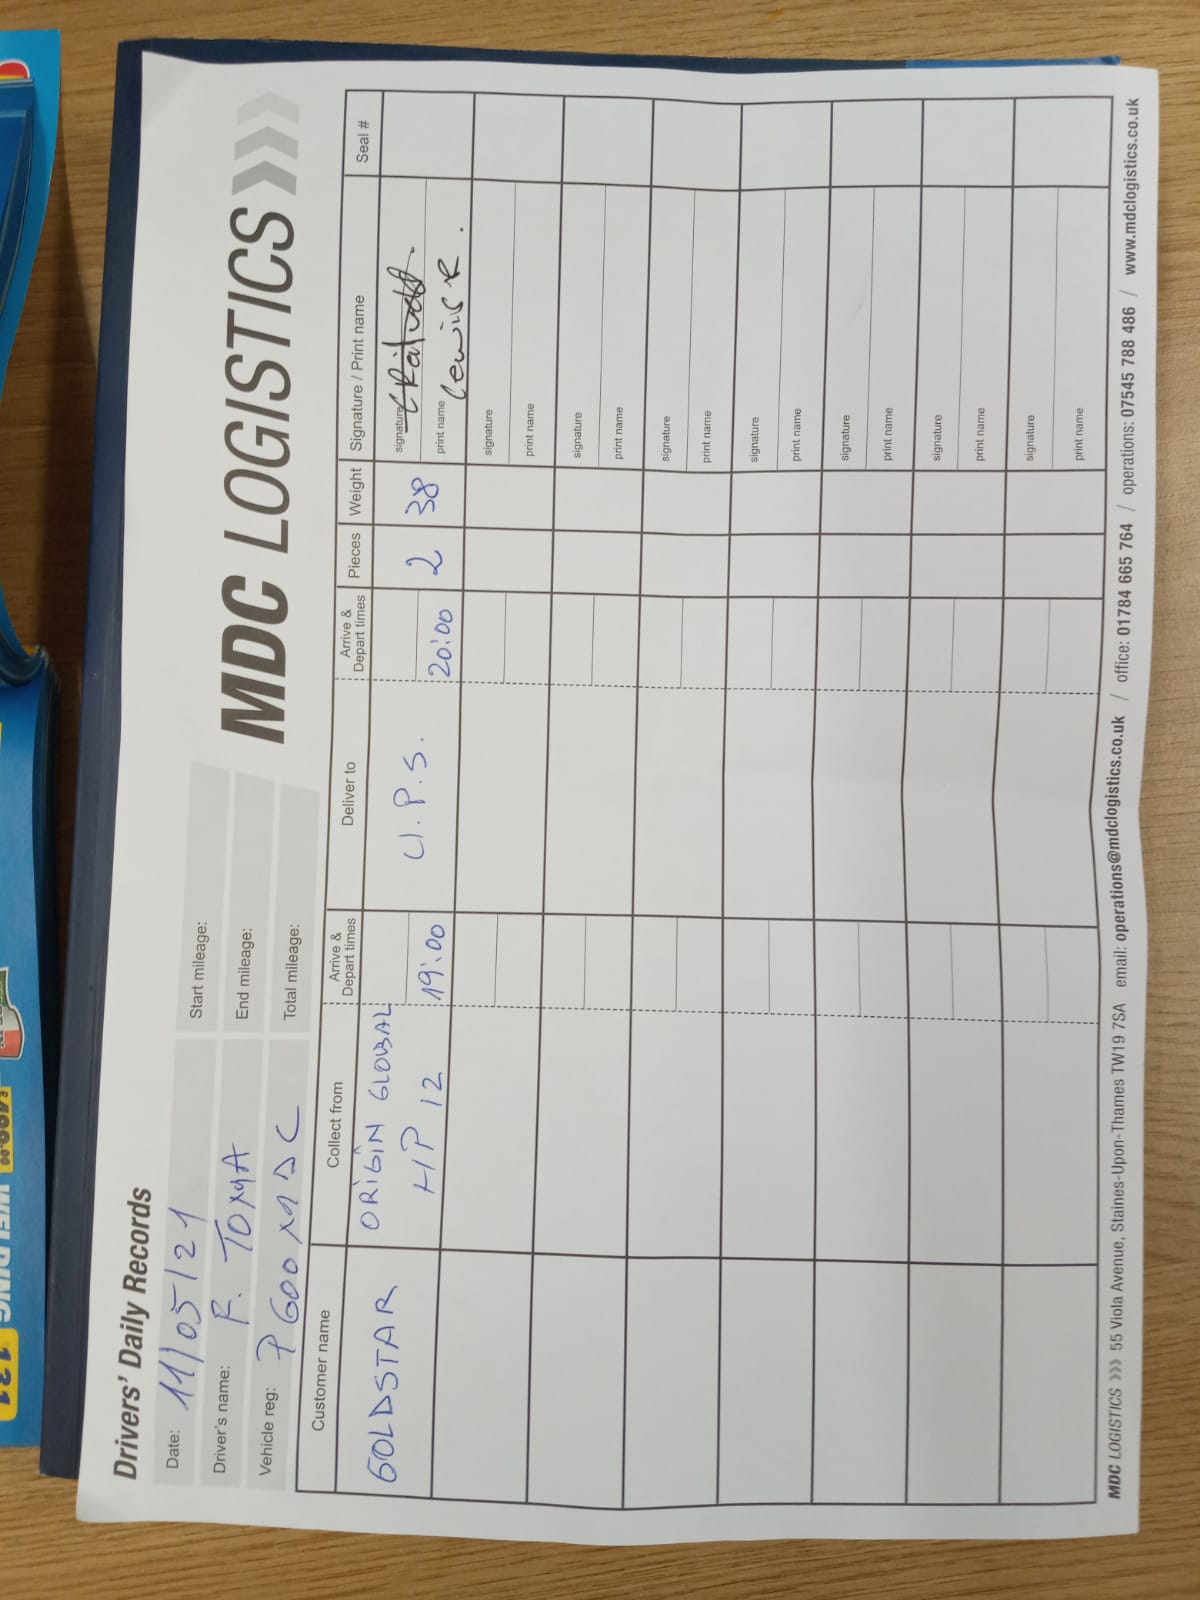 Drivers' Daily Records
MDC LOGISTICS
Date: 11/05/21
Start mileage:
Driver's name: F. TOMA
End mileage:
Vehicle reg: P600 MDC
Total mileage:
Customer name Collect from Arrive & Depart times Deliver to Arrive & Depart times Pieces Weight Signature / Print name Seal #
GOLDSTAR ORIGIN GLOBAL HP 12 19:00 U.P.S. 20:00 2 38 signature
print name Lewis R.
signature
print name
signature
print name
signature
print name
signature
print name
signature
print name
signature
print name
signature
print name
MDC LOGISTICS >>> 55 Viola Avenue, Staines-Upon-Thames TW19 7SA email: operations@mdclogistics.co.uk / office: 01784 665 764 / operations: 07545 788 486 / www.mdclogistics.co.uk
WELDING
131